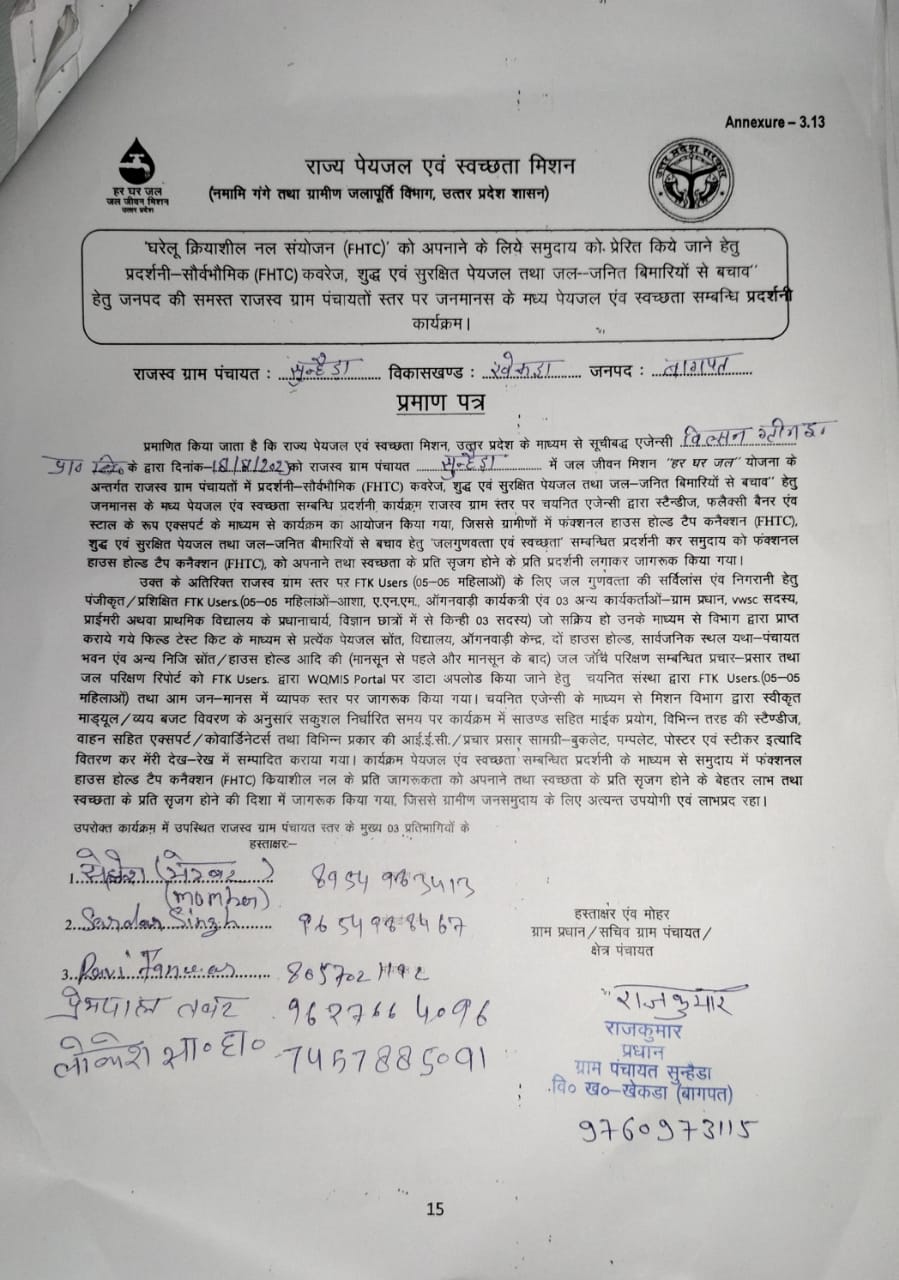 Annexure – 3.13
राज्य पेयजल एवं स्वच्छता मिशन
(नमामि गंगे तथा ग्रामीण जलापूर्ति विभाग, उत्तर प्रदेश शासन)
हर घर जल
जल जीवन मिशन
उत्तर प्रदेश
उत्तर प्रदेश सरकार
'घरेलू क्रियाशील नल संयोजन (FHTC)' को अपनाने के लिये समुदाय को प्रेरित किये जाने हेतु
प्रदर्शनी–सौर्वभौमिक (FHTC) कवरेज, शुद्ध एवं सुरक्षित पेयजल तथा जल–जनित बिमारियों से बचाव"
हेतु जनपद की समस्त राजस्व ग्राम पंचायतों स्तर पर जनमानस के मध्य पेयजल एंव स्वच्छता सम्बन्धि प्रदर्शनी
कार्यक्रम।
राजस्व ग्राम पंचायत : सुन्हैडा विकासखण्ड : खेकडा जनपद : बागपत
प्रमाण पत्र
प्रमाणित किया जाता है कि राज्य पेयजल एवं स्वच्छता मिशन, उत्तर प्रदेश के माध्यम से सूचीबद्ध एजेन्सी विल्सन
प्रा० लि० के द्वारा दिनांक–18/8/202 को राजस्व ग्राम पंचायत सुन्हैडा में जल जीवन मिशन "हर घर जल" योजना के
अन्तर्गत राजस्व ग्राम पंचायतों में प्रदर्शनी–सौर्वभौमिक (FHTC) कवरेज, शुद्ध एवं सुरक्षित पेयजल तथा जल–जनित बिमारियों से बचाव" हेतु
जनमानस के मध्य पेयजल एंव स्वच्छता सम्बन्धि प्रदर्शनी कार्यक्रम राजस्व ग्राम स्तर पर चयनित एजेन्सी द्वारा स्टैन्डीज, फलैक्सी बैनर एंव
स्टाल के रूप एक्सपर्ट के माध्यम से कार्यक्रम का आयोजन किया गया, जिससे ग्रामीणों में फंक्शनल हाउस होल्ड टैप कनैक्शन (FHTC),
शुद्ध एवं सुरक्षित पेयजल तथा जल–जनित बीमारियों से बचाव हेतु 'जलगुणवत्ता एवं स्वच्छता' सम्बन्धित प्रदर्शनी कर समुदाय को फंक्शनल
हाउस होल्ड टैप कनैक्शन (FHTC), को अपनाने तथा स्वच्छता के प्रति सृजग होने के प्रति प्रदर्शनी लगाकर जागरूक किया गया।
उक्त के अतिरिक्त राजस्व ग्राम स्तर पर FTK Users (05–05 महिलाओं) के लिए जल गुणवत्ता की सर्विलांस एंव निगरानी हेतु
पंजीकृत/प्रशिक्षित FTK Users.(05–05 महिलाओं–आशा, ए.एन.एम., ऑगनवाड़ी कार्यकत्री एंव 03 अन्य कार्यकर्ताओं–ग्राम प्रधान, vwsc सदस्य,
प्राईमरी अथवा प्राथमिक विद्यालय के प्रधानाचार्य, विज्ञान छात्रों में से किन्ही 03 सदस्य) जो सक्रिय हो उनके माध्यम से विभाग द्वारा प्राप्त
कराये गये फिल्ड टेस्ट किट के माध्यम से प्रत्येक पेयजल स्रोंत, विद्यालय, ऑगनवाड़ी केन्द्र, दों हाउस होल्ड, सार्वजनिक स्थल यथा–पंचायत
भवन एंव अन्य निजि स्रोंत/हाउस होल्ड आदि की (मानसून से पहले और मानसून के बाद) जल जाँच परिक्षण सम्बन्धित प्रचार–प्रसार तथा
जल परिक्षण रिपोर्ट को FTK Users. द्वारा WQMIS Portal पर डाटा अपलोड किया जाने हेतु चयनित संस्था द्वारा FTK Users.(05–05
महिलाओं) तथा आम जन–मानस में व्यापक स्तर पर जागरूक किया गया। चयनित एजेन्सी के माध्यम से मिशन विभाग द्वारा स्वीकृत
माड्यूल/व्यय बजट विवरण के अनुसार सकुशल निर्धारित समय पर कार्यक्रम में साउण्ड सहित माईक प्रयोग, विभिन्न तरह की स्टैण्डीज,
वाहन सहित एक्सपर्ट/कोवार्डिनेटर्स तथा विभिन्न प्रकार की आई.ई.सी./प्रचार प्रसार सामग्री–बुकलेट, पम्पलेट, पोस्टर एवं स्टीकर इत्यादि
वितरण कर मेंरी देख–रेख में सम्पादित कराया गया। कार्यक्रम पेयजल एंव स्वच्छता सम्बन्धित प्रदर्शनी के माध्यम से समुदाय में फंक्शनल
हाउस होल्ड टैप कनैक्शन (FHTC) कियाशील नल के प्रति जागरूकता को अपनाने तथा स्वच्छता के प्रति सृजग होने के बेहतर लाभ तथा
स्वच्छता के प्रति सृजग होने की दिशा में जागरूक किया गया, जिससे ग्रामीण जनसमुदाय के लिए अत्यन्त उपयोगी एवं लाभप्रद रहा।
उपरोक्त कार्यक्रम में उपस्थित राजस्व ग्राम पंचायत स्तर के मुख्य 03 प्रतिभागियों के
हस्ताक्षरः–
1.
2. Sardar Singh
3. Ravi Tanwar
प्रेमपाल तवंर 9627664096
लोकेश 7457885091
हस्ताक्षर एंव मोहर
ग्राम प्रधान/सचिव ग्राम पंचायत/
क्षेत्र पंचायत
राजकुमार
राजकुमार
प्रधान
ग्राम पंचायत सुन्हैडा
वि० ख०–खेकडा (बागपत)
9760973115
15